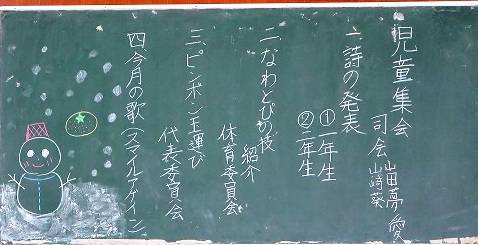 児童集会
司会 山田夢愛
山崎葵
一、詩の発表
①一年生
②二年生
二、なわとびの技
紹介
体育委員会
三、ピンポン玉運び
代表委員会
四、今月の歌(スマイルアゲイン)